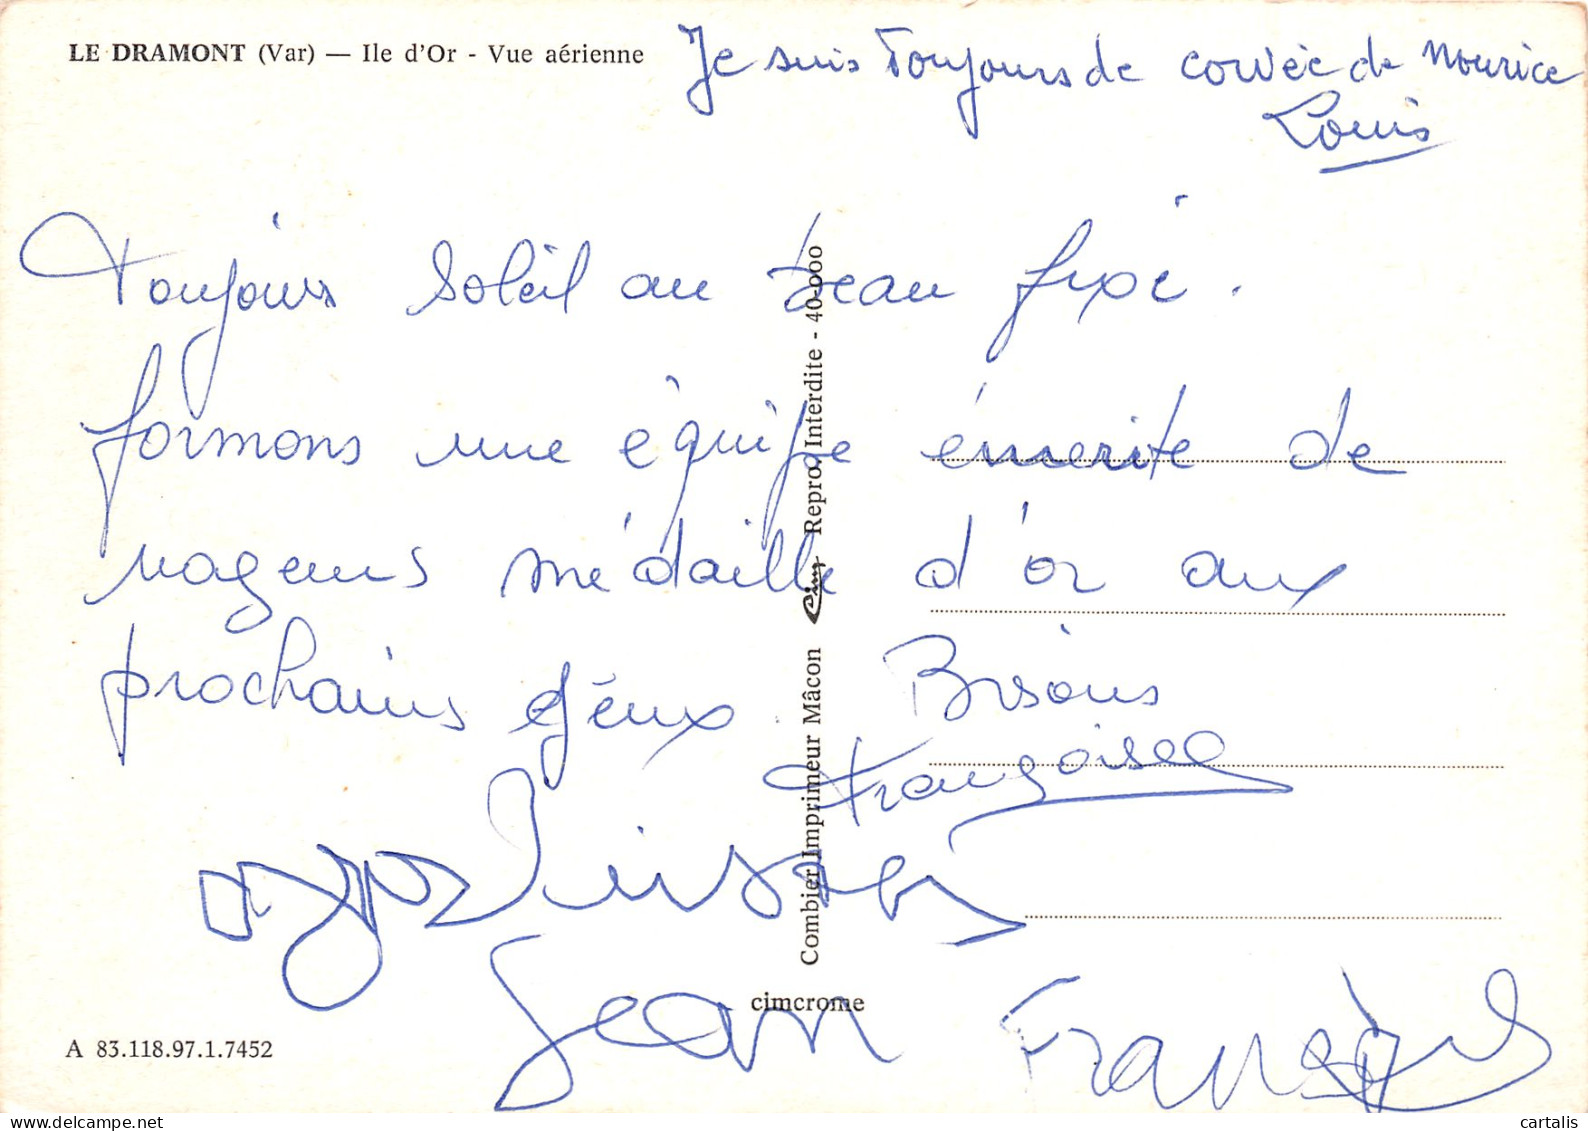 LE DRAMONT (Var) — Ile d'Or - Vue aérienne
Je suis Toujours de corvée de Nourice
Louis
Toujours Soleil au beau fixe.
formons une équipe émerite de
nageurs médaille d'or aux
prochains Jéux. Bisous
Françoise
Jean François
Combier Imprimeur Mâcon Cim Repro. Interdite - 40-000
cimcrome
A 83.118.97.1.7452
cartalis